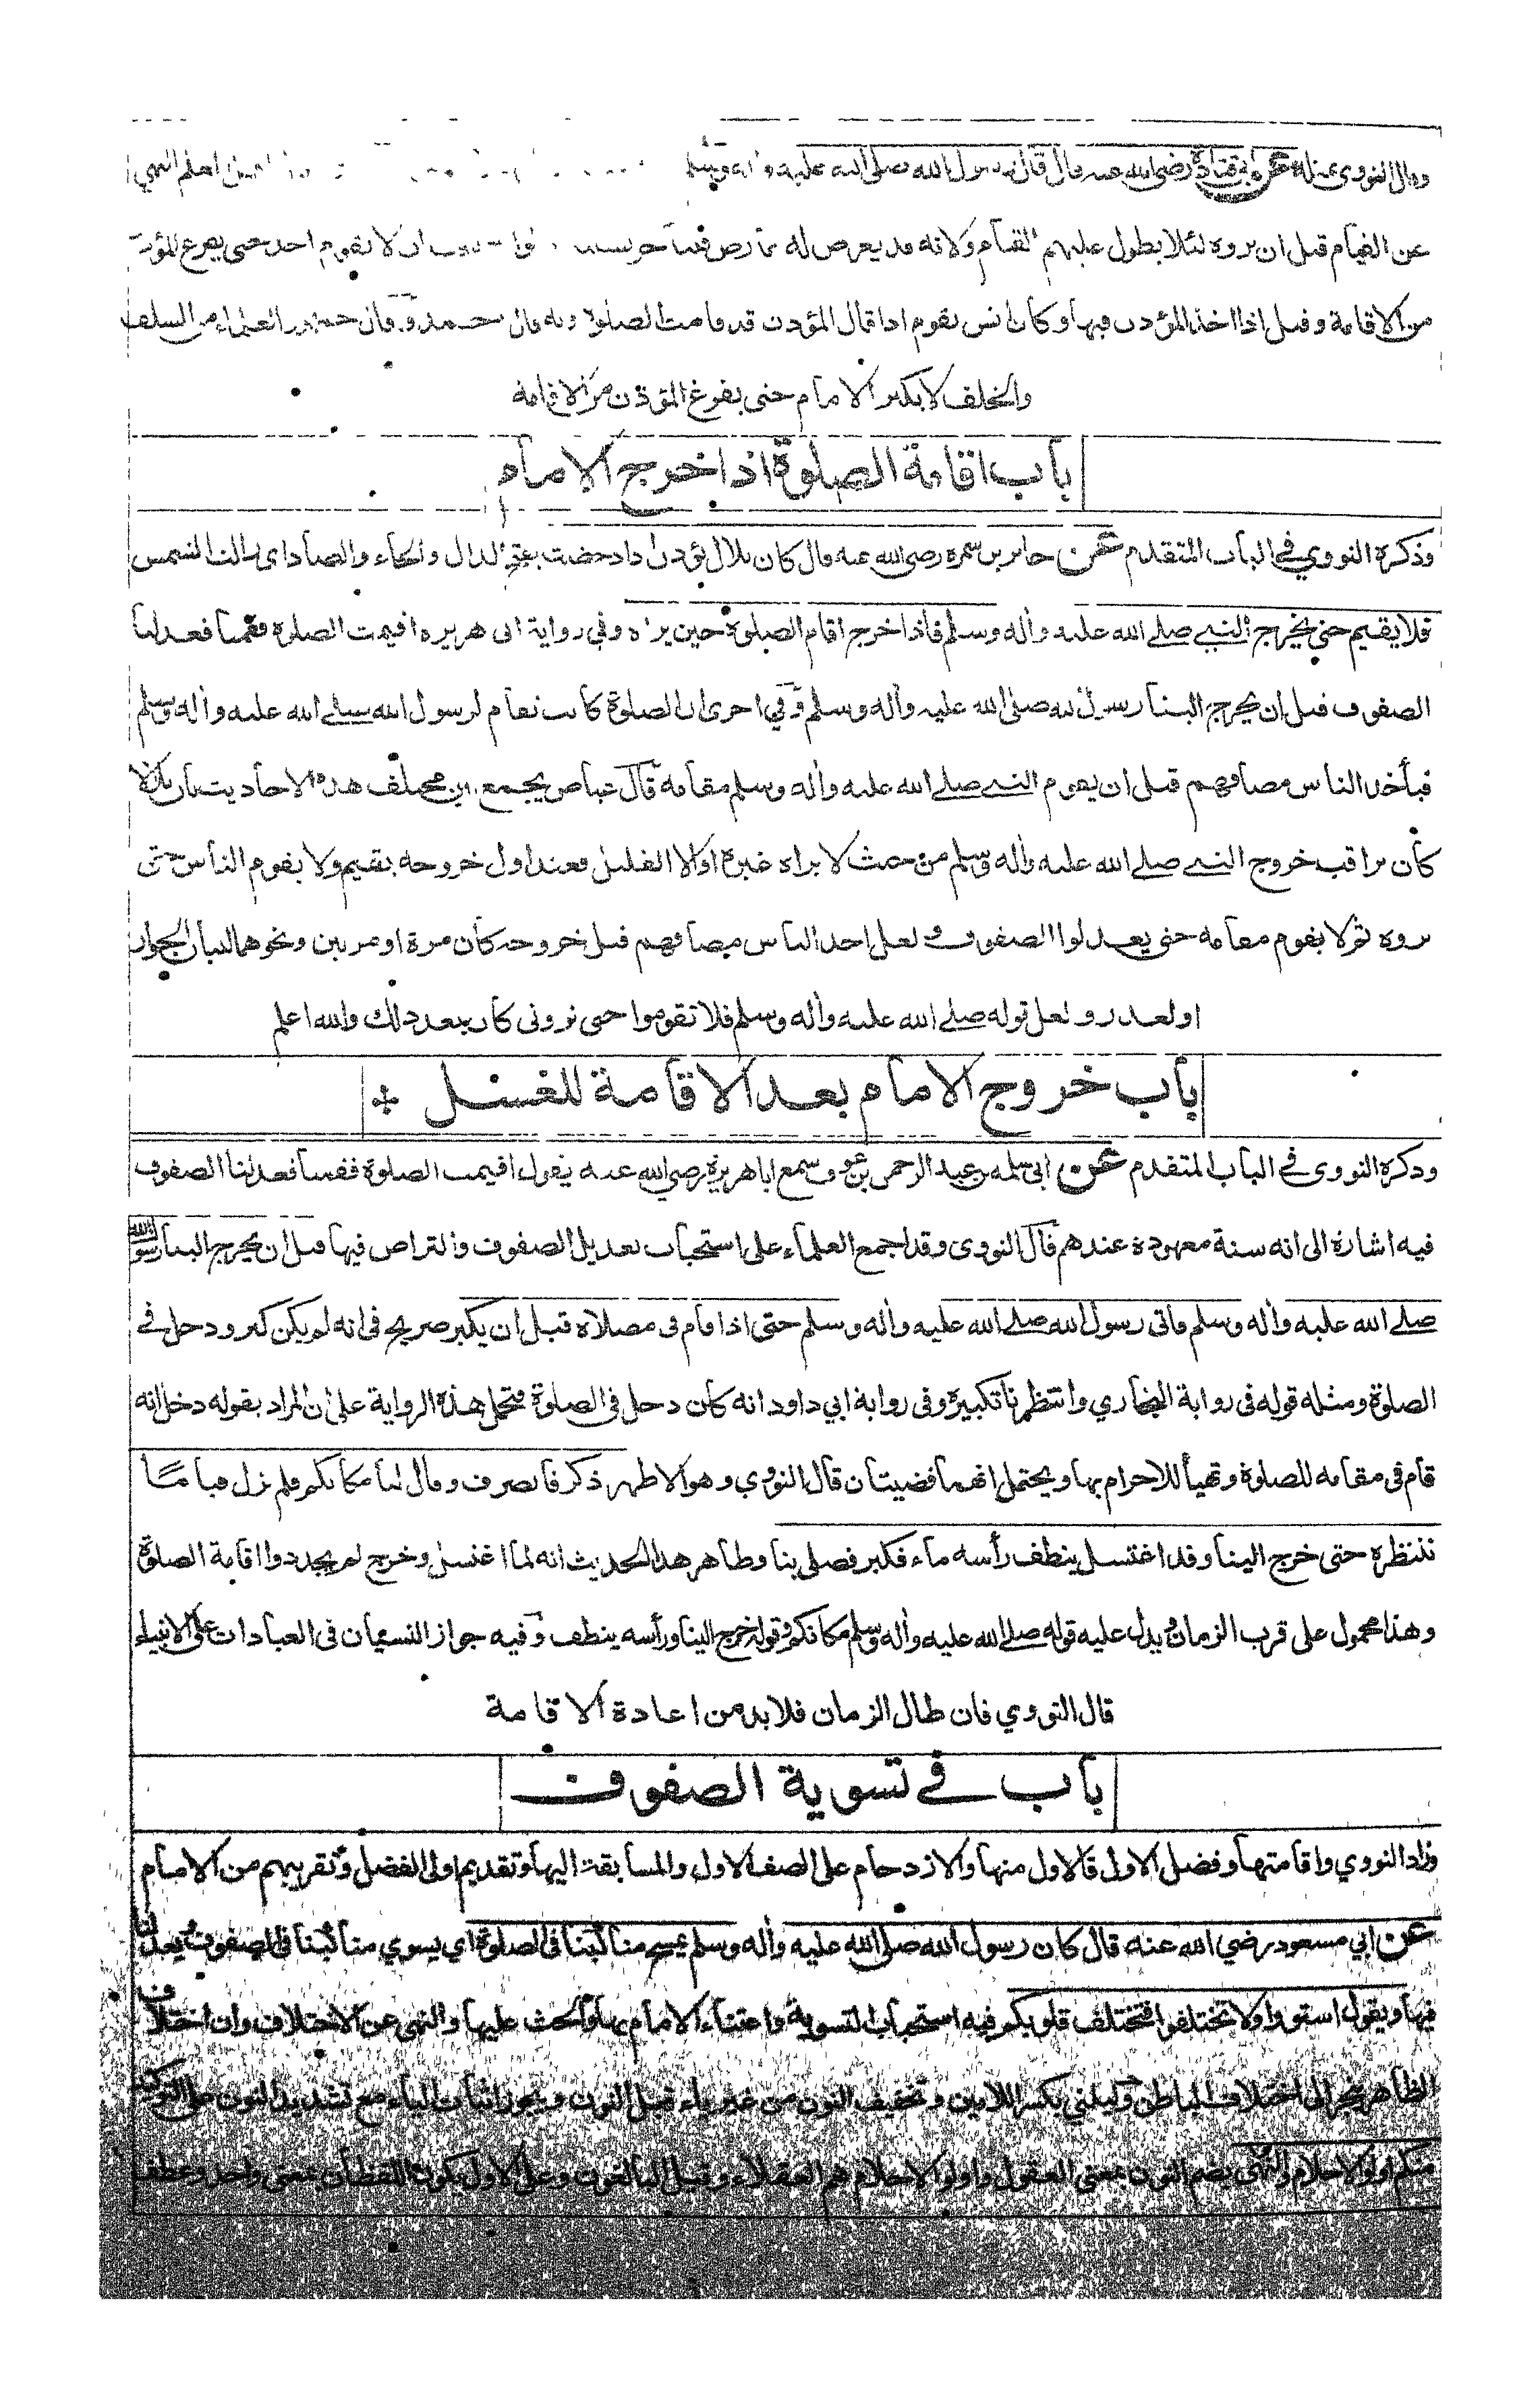 وقال النووي مثله عن ابي قتادة رضي الله عنه قال قال رسول الله صلى الله عليه واله وسلم العلم النهي
عن القيام قبل ان يروه لئلا يطول عليهم القيام ولانه قد يعرض له عارض فيتأخر بسببه ان لا يقوم احد حتى يفرغ المؤذن
من الاقامة وقيل اذا اخذ المؤذن فيها وكان انس يقوم اذا قال المؤذن قد قامت الصلوة وبه قال احمد وقال جمهور العلماء من السلف
والخلف لا يكبر الامام حتى يفرغ المؤذن من الاقامة
باب اقامة الصلوة اذا خرج الامام
وذكره النووي في الباب المتقدم عن جابر بن سمرة رضي الله عنه قال كان بلال يؤذن اذا دحضت بفتح الدال والحاء والضاد اي زالت الشمس
فلا يقيم حتى يخرج النبي صلى الله عليه واله وسلم فاذا خرج اقام الصلوة حين يراه وفي رواية ابي هريرة اقيمت الصلوة فقمنا فعدلنا
الصفوف قبل ان يخرج الينا رسول الله صلى الله عليه واله وسلم وفي اخرى ان الصلوة كانت تقام لرسول الله صلى الله عليه واله وسلم
فيأخذ الناس مصافهم قبل ان يقوم النبي صلى الله عليه واله وسلم مقامه قال عياض يجمع بين مختلف هذه الاحاديث بان بلالا
كان يراقب خروج النبي صلى الله عليه واله وسلم من حيث لا يراه غيره او الا القليل فعند اول خروجه يقيم ولا يقوم الناس حتى
يروه ثم لا يقوم مقامه حتى يعدلوا الصفوف ولعل اخذ الناس مصافهم قبل خروجه كان مرة او مرتين ونحوهما لبيان الجواز
او لعذر ولعل قوله صلى الله عليه واله وسلم فلا تقوموا حتى تروني كان بعد ذلك والله اعلم
باب خروج الامام بعد الاقامة للغسل
وذكره النووي في الباب المتقدم عن ابي سلمة بن عبد الرحمن بن عوف سمع ابا هريرة رضي الله عنه يقول اقيمت الصلوة فقمنا فعدلنا الصفوف
فيه اشارة الى انه سنة معهودة عندهم قال النووي وقد اجمع العلماء على استحباب تعديل الصفوف والتراص فيها قبل ان يخرج الينا رسول الله
صلى الله عليه واله وسلم فاتى رسول الله صلى الله عليه واله وسلم حتى اذا قام في مصلاه قبل ان يكبر صريح في انه لم يكن كبر ودخل في
الصلوة ومثله قوله في رواية البخاري وانتظرنا تكبيره وفي رواية ابي داود انه كان دخل في الصلوة فتحمل هذه الرواية على ان المراد بقوله دخل انه
قام في مقامه للصلوة وتهيأ للاحرام بها ويحتمل انهما قضيتان قال النووي وهو الاظهر ذكر فانصرف وقال لنا مكانكم فلم نزل قياما
ننتظره حتى خرج الينا وقد اغتسل ينطف رأسه ماء فكبر فصلى بنا وظاهر هذا الحديث انه لما اغتسل وخرج لم يجددوا اقامة الصلوة
وهذا محمول على قرب الزمان ويدل عليه قوله صلى الله عليه واله وسلم مكانكم وقوله خرج الينا ورأسه ينطف وفيه جواز النسيان في العبادات على الانبياء
قال النووي فان طال الزمان فلا بد من اعادة الاقامة
باب في تسوية الصفوف
وزاد النووي واقامتها وفضل الاول فالاول منها والازدحام على الصف الاول والمسابقة اليها وتقديم اولى الفضل وتقريبهم من الامام
عن ابي مسعود رضي الله عنه قال كان رسول الله صلى الله عليه واله وسلم يمسح مناكبنا في الصلوة اي يسوي مناكبنا في الصفوف ويعدلنا
فيها ويقول استووا ولا تختلفوا فتختلف قلوبكم فيه استحباب التسوية واعتناء الامام بها والحث عليها والنهي عن الاختلاف وان اختلاف
الظاهر ينجر الى اختلاف الباطن وليلني بكسر اللامين وتخفيف النون من غير ياء قبل النون ويجوز اثبات الياء مع تشديد النون على التوكيد
منكم اولو الاحلام والنهى بضم النون بمعنى العقول واولو الاحلام هم العقلاء وقيل البالغون وعلى الاول يكون اللفظان بمعنى واحد وعطف